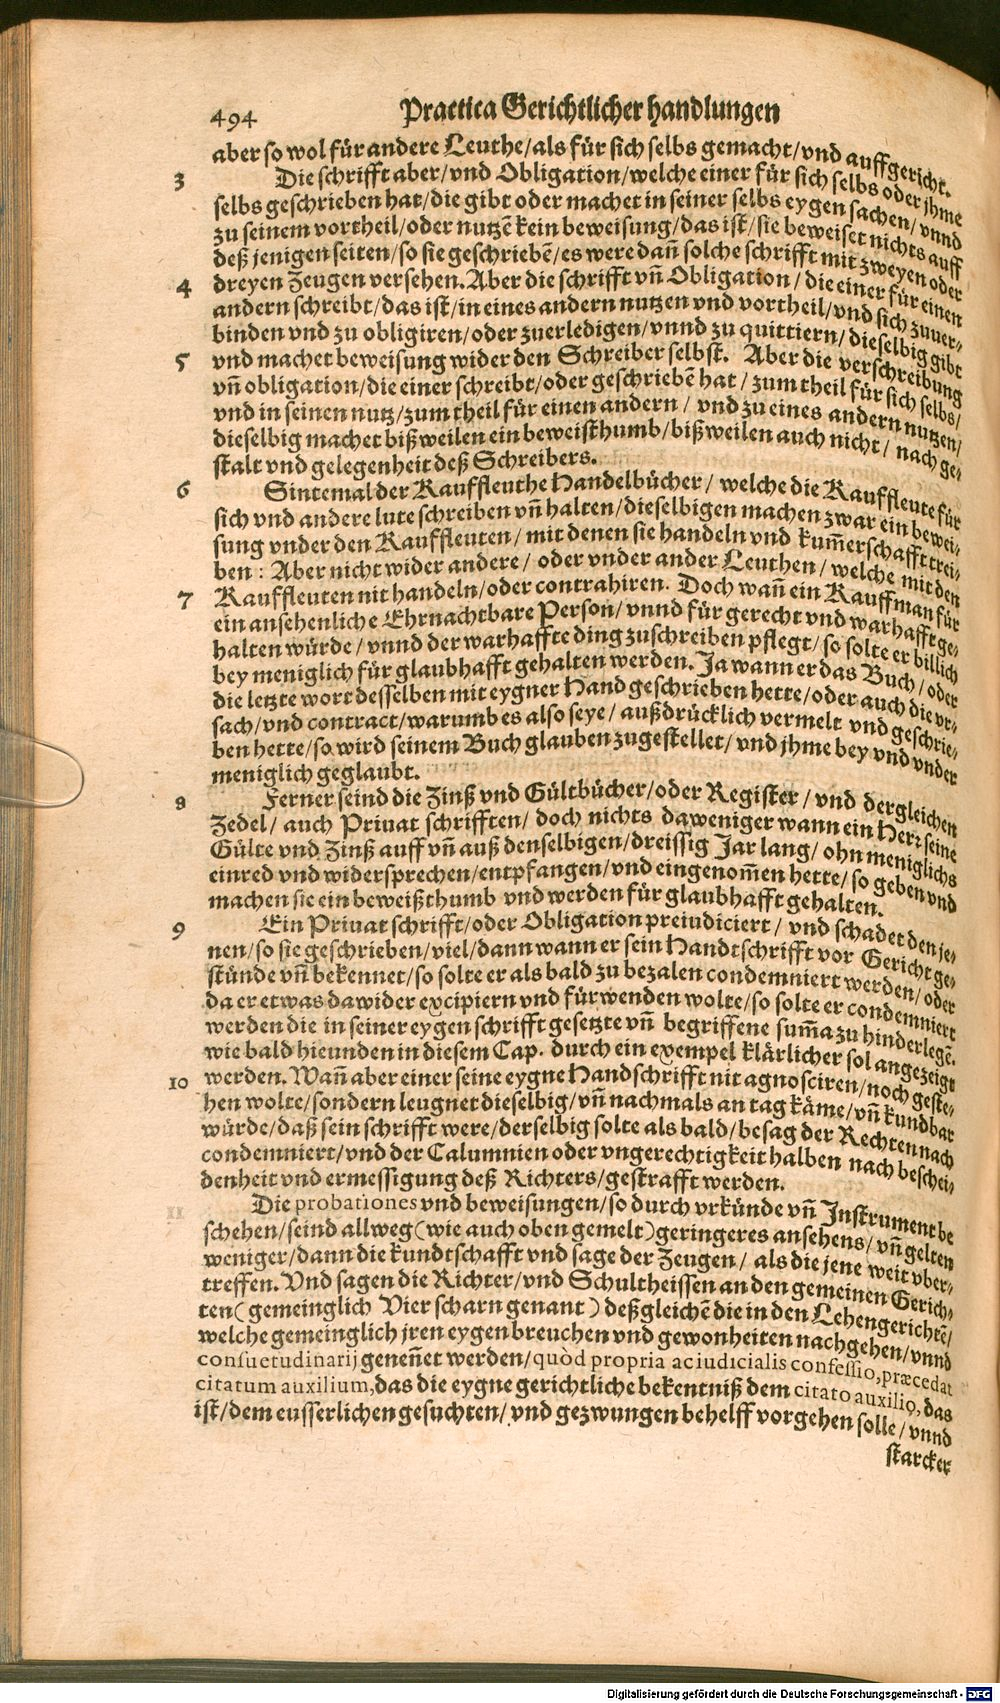 494 Practica Gerichtlicher handlungen
aber so wol für andere Leuthe/als für sich selbs gemacht/vnd auffgericht.
3 Die schrifft aber/vnd Obligation/welche einer für sich selbs oder jhme
selbs geschrieben hat/die gibt oder machet in seiner selbs eygen sachen/vnnd
zu seinem vortheil/oder nutzē kein beweisung/das ist/sie beweiset nichts auff
deß jenigen seiten/so sie geschriebē/es were dañ solche schrifft mit zweyen oder
4 dreyen Zeugen versehen. Aber die schrifft vñ Obligation/die einer für einen
andern schreibt/das ist/in eines andern nutzen vnd vortheil/vnd sich zuuer-
binden vnd zu obligiren/oder zuerledigen/vnnd zu quittiern/dieselbig gibt
5 vnd machet beweisung wider den Schreiber selbst. Aber die verschreibung
vñ obligation/die einer schreibt/oder geschriebē hat/zum theil für sich selbs/
vnd in seinen nutz/zum theil für einen andern/vnd zu eines andern nutzen/
dieselbig machet bißweilen ein beweisthumb/bißweilen auch nicht/nach ge-
stalt vnd gelegenheit deß Schreibers.
6 Sintemal der Kauffleuthe Handelbücher/welche die Kauffleute für
sich vnd andere lute schreiben vñ halten/dieselbigen machen zwar ein bewei-
sung vnder den Kauffleuten/mit denen sie handeln vnd kum̄erschafft trei-
ben: Aber nicht wider andere/oder vnder ander Leuthen/welche mit den
7 Kauffleuten nit handeln/oder contrahiren. Doch wañ ein Kauffman für
ein ansehenliche Ehrnachtbare Person/vnnd für gerecht vnd warhafft ge-
halten würde/vnnd der warhaffte ding zuschreiben pflegt/so solte er billich
bey meniglich für glaubhafft gehalten werden. Ja wann er das Buch/oder
die letzte wort desselben mit eygner Hand geschrieben hette/oder auch die vr-
sach/vnd contract/warumb es also seye/außdrücklich vermelt vnd geschrie-
ben hette/so wird seinem Buch glauben zugestellet/vnd jhme bey vnd vnder
meniglich geglaubt.
8 Ferner seind die Zinß vnd Gültbücher/oder Register/vnd dergleichen
Zedel/auch Priuat schrifften/doch nichts daweniger wann ein Herr seine
Gülte vnd Zinß auff vñ auß denselbigen/dreissig Jar lang/ohn meniglichs
einred vnd widersprechen/entpfangen/vnd eingenom̄en hette/so geben vnd
machen sie ein beweißthumb vnd werden für glaubhafft gehalten.
9 Ein Priuat schrifft/oder Obligation preiudiciert/vnd schadet den je-
nen/so sie geschrieben/viel/dann wann er sein Handtschrifft vor Gericht ge-
stünde vñ bekennet/so solte er als bald zu bezalen condemniert werden/oder
da er etwas dawider excipiern vnd fürwenden wolte/so solte er condemniert
werden die in seiner eygen schrifft gesetzte vñ begriffene sum̄a zu hinderlegē.
wie bald hieunden in diesem Cap. durch ein exempel klärlicher sol angezeigt
10 werden. Wañ aber einer seine eygne Handschrifft nit agnosciren/noch geste-
hen wolte/sondern leugnet dieselbig/vñ nachmals an tag käme/vñ kundbar
würde/daß sein schrifft were/derselbig solte als bald/besag der Rechten nach
condemniert/vnd der Calumnien oder vngerechtigkeit halben nach beschei-
denheit vnd ermessigung deß Richters/gestrafft werden.
11 Die probationes vnd beweisungen/so durch vrkünde vñ Instrument be
schehen/seind allweg (wie auch oben gemelt) geringeres ansehens/vñ gelten
weniger/dann die kundtschafft vnd sage der Zeugen/als die jene weit vber-
treffen. Vnd sagen die Richter/vnd Schultheissen an den gemeinen Gerich-
ten (gemeinglich Vierscharn genant) deßgleichē die in den Lehengerichtē/
welche gemeinglich jren eygen breuchen vnd gewonheiten nachgehen/vnnd
consuetudinarij geneñet werden/quòd propria ac iudicialis confessio, præcedat
citatum auxilium, das die eygne gerichtliche bekentniß dem citato auxilio, das
ist/dem eusserlichen gesuchten/vnd gezwungen behelff vorgehen solle/vnnd
starcker
Digitalisierung gefördert durch die Deutsche Forschungsgemeinschaft - DFG